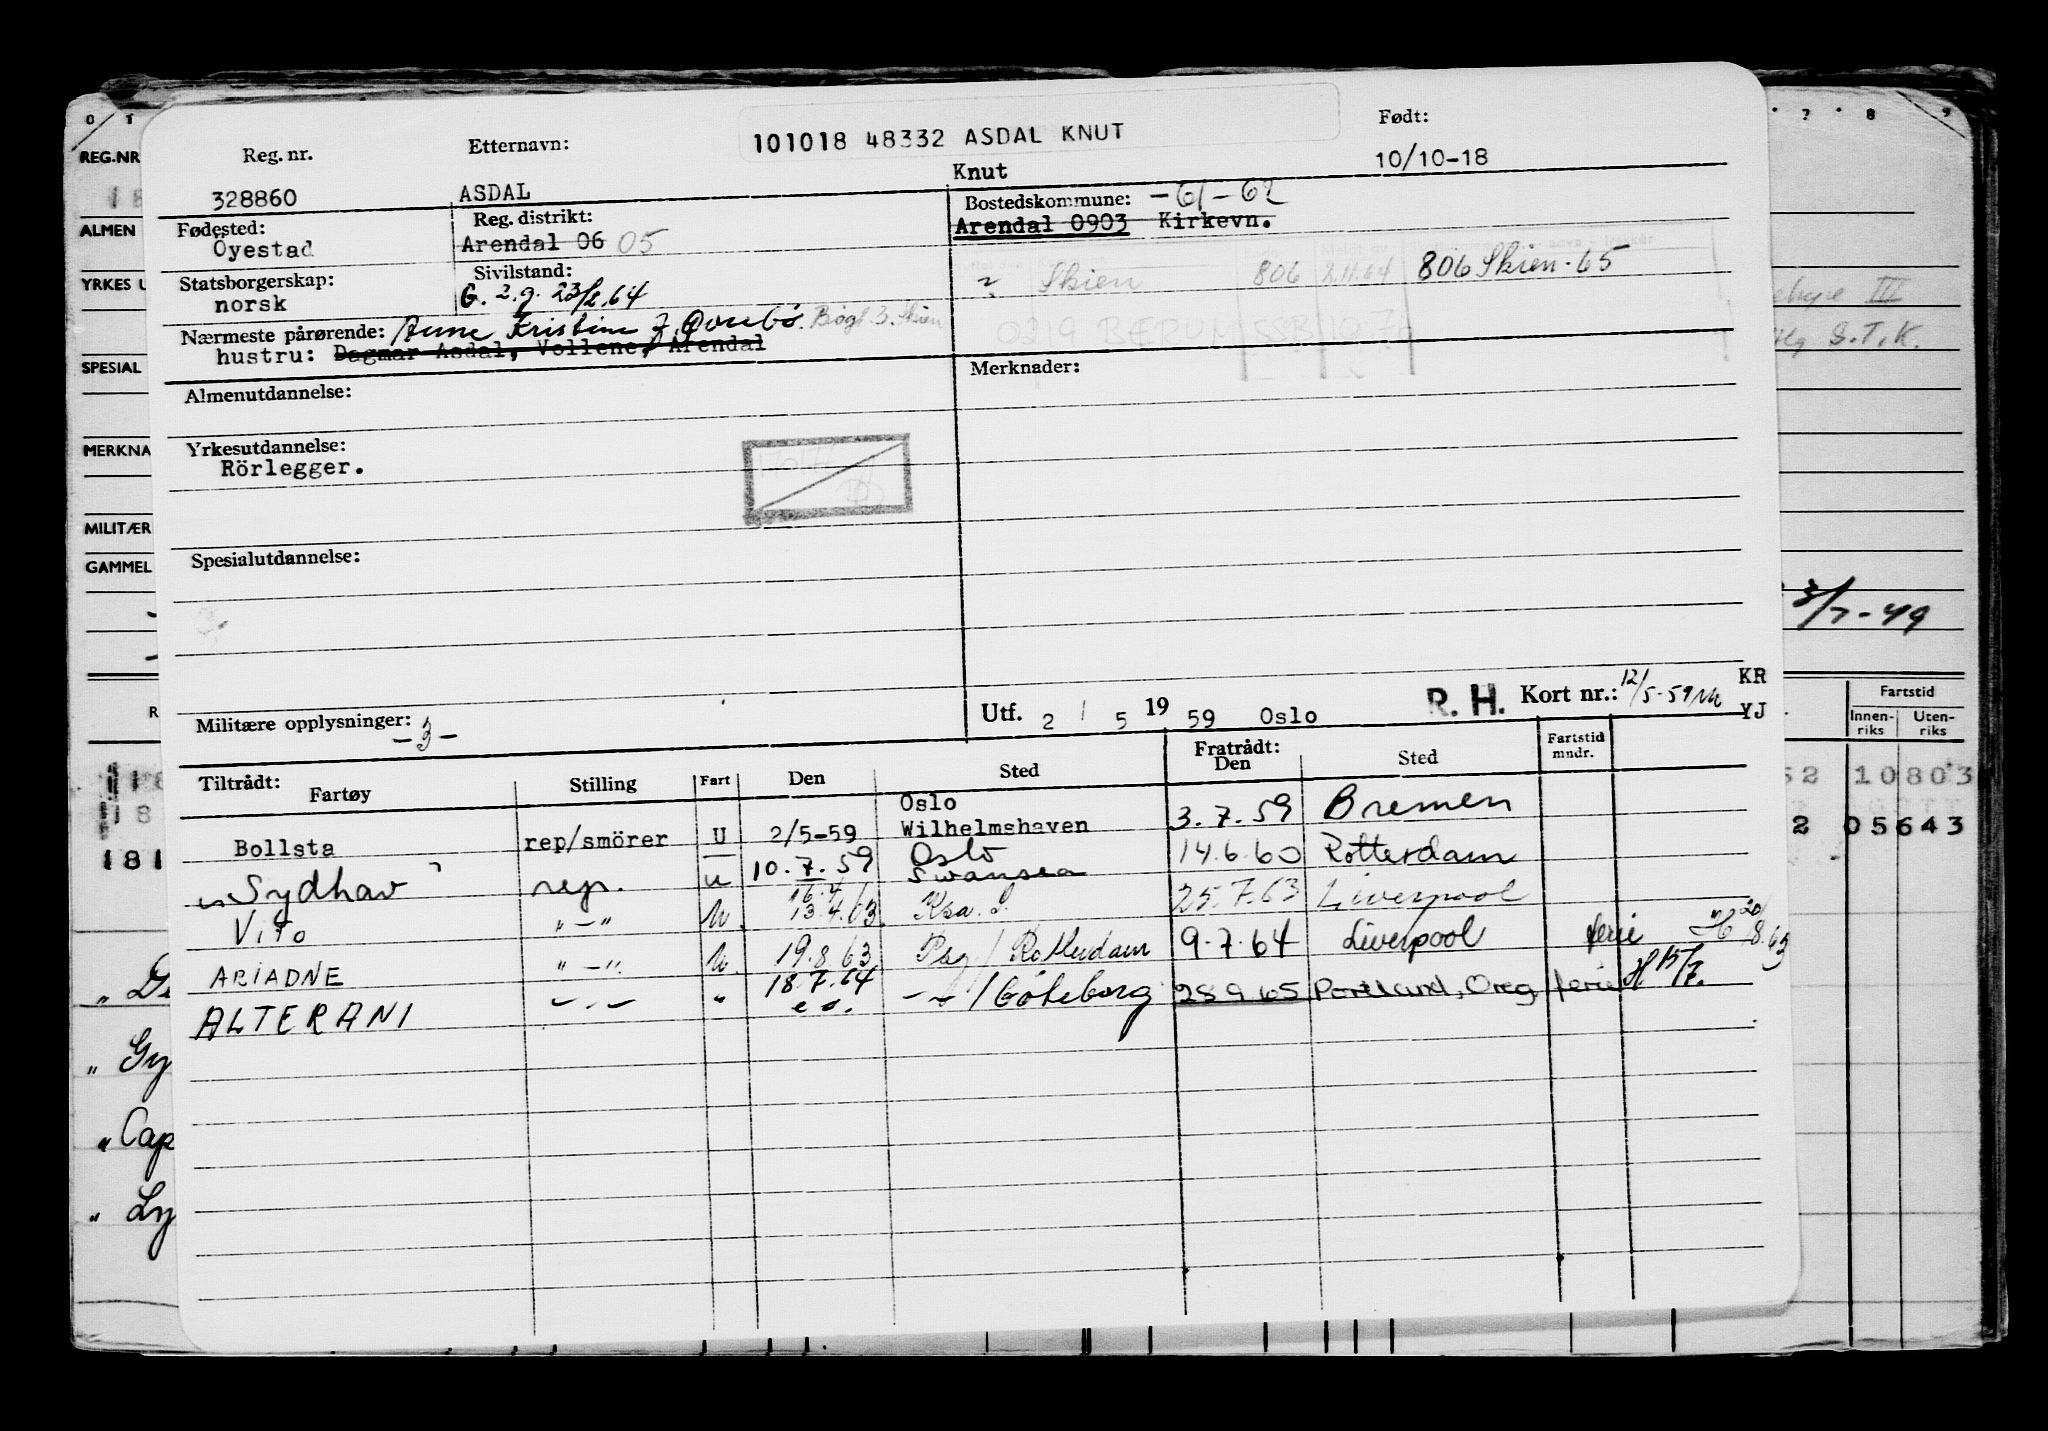 101018 48332 ASDAL KNUT
Reg. nr. Etternavn: Født:
328860 ASDAL Knut 10/10-18
Fødested: Reg. distrikt: Bostedskommune: -61-62
Öyestad Arendal 06 05 Arendal 0903 Kirkevn.
Statsborgerskap: Sivilstand: Skien 806 2.11.64 806 Skien-65
norsk G. 2.g. 23/2.64
Nærmeste pårørende: Anne Kristine f.
hustru: Dagmar Asdal, Vollene, Arendal
0219 BÆRUM SSB 197
Almenutdannelse: Merknader:
Yrkesutdannelse:
Rörlegger.
Spesialutdannelse:
Militære opplysninger: -3-
Utf. 2 / 5 19 59 Oslo R. H. Kort nr.: 12/5-59 KR
YJ
Tiltrådt: Fratrådt:
Fartøy Stilling Fart Den Sted Den Sted Fartstid mndr.
Bollsta rep/smörer U 2/5-59 Oslo Wilhelmshaven 3.7.59 Bremen
Sydhav rep. u 10.7.59 Oslo Swansea 14.6.60 Rotterdam
Vito "-" U 16.4/13.4.63 Ksa. S. 25.7.63 Liverpool
ARIADNE "-" U 19.8.63 Psg/Rotterdam 9.7.64 Liverpool ferie H 20/8.63
ALTERANI -"- " 18.7.64 e.o. -"-/Göteborg 28.9.65 Portland, Oreg. ferie H 15/7.
REG.NR
ALMEN
YRKES U
SPESIAL
MERKNA
MILITÆR
GAMMEL
0 1
7 8 9
III
S.T.K.
3/7-49
Fartstid
Innen-riks Uten-riks
52 10803
2 05643
181
" Gy
" Cap
" Ly